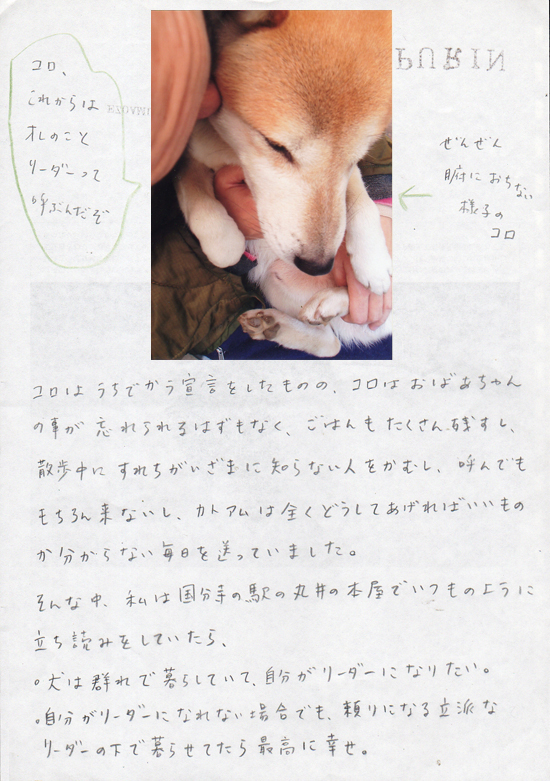 コロ、
これからは
オレのこと
リーダーって
呼ぶんだぞ
PURIN
ぜんぜん
腑におちない
様子の
コロ
コロはうちでかう宣言をしたものの、コロはおばあちゃん
の事が忘れられるはずもなく、ごはんもたくさん残すし、
散歩中にすれちがいざまに知らない人をかむし、呼んでも
もちろん来ないし、カトアムは全くどうしてあげればいいもの
か分からない毎日を送っていました。
そんな中、私は国分寺の駅の丸井の本屋でいつものように
立ち読みをしていたら、
◦犬は群れで暮らしていて、自分がリーダーになりたい。
◦自分がリーダーになれない場合でも、頼りになる立派な
リーダーの下で暮らせてたら最高に幸せ。